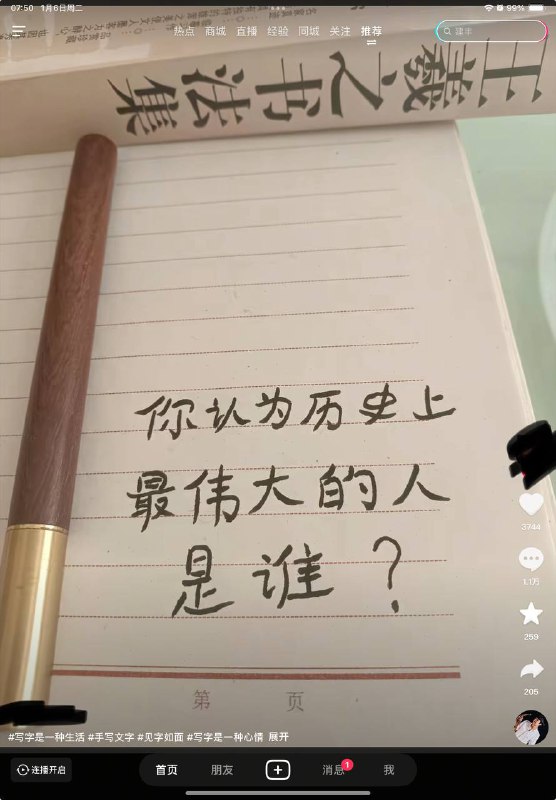 07:50 1月6日周二
99%
热点 商城 直播 经验 同城 关注 推荐
建丰
王羲之书法集
你认为历史上
最伟大的人
是谁？
3744
1.1万
259
205
第 页
#写字是一种生活 #手写文字 #见字如面 #写字是一种心情 展开
连播开启
首页 朋友 消息 1 我